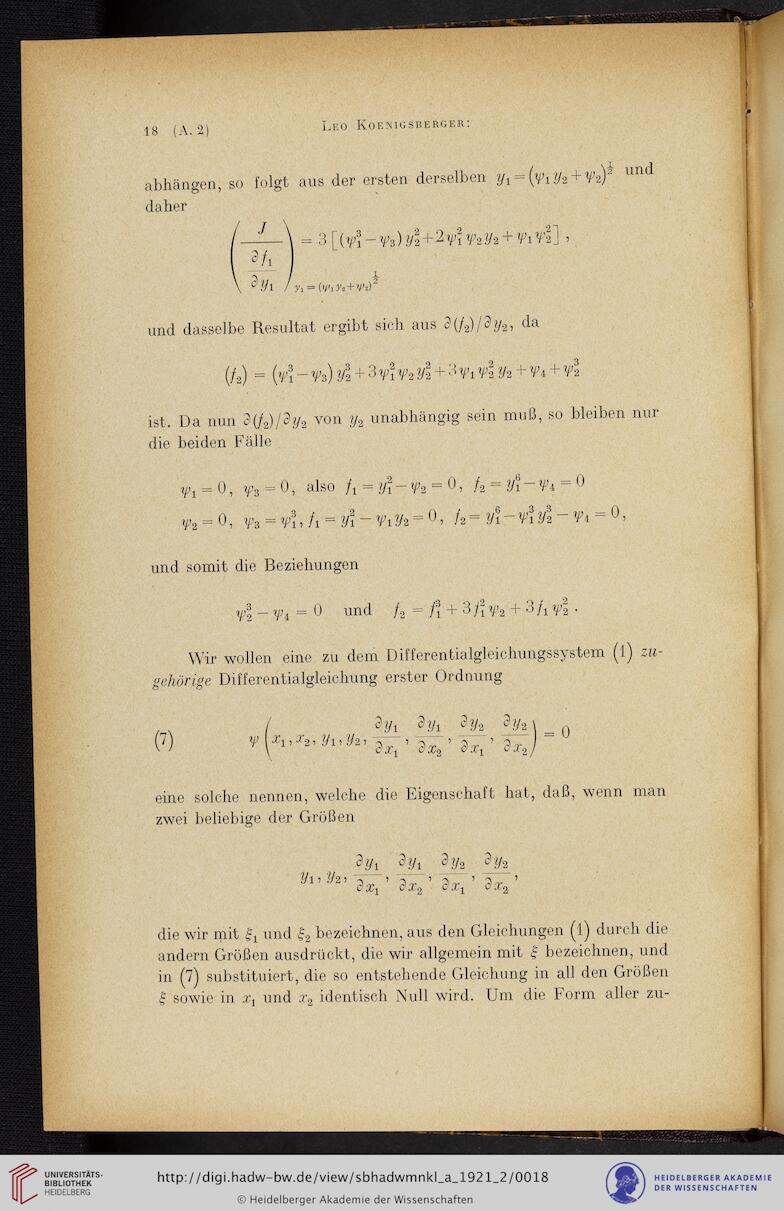 18 (A. 2) LEO KOENIGSBERGER:
abhängen, so folgt aus der ersten derselben y₁ = (ψ₁ y₂ + ψ₂)^½ und
daher
(J / (∂f₁/∂y₁))_{y₁ = (ψ₁ y₂ + ψ₂)^½} = 3 [(ψ₁³ − ψ₃) y₂² + 2 ψ₁² ψ₂ y₂ + ψ₁ ψ₂²] ,
und dasselbe Resultat ergibt sich aus ∂(f₂)/∂y₂, da
(f₂) = (ψ₁³ − ψ₃) y₂³ + 3 ψ₁² ψ₂ y₂² + 3 ψ₁ ψ₂² y₂ + ψ₄ + ψ₂³
ist. Da nun ∂(f₂)/∂y₂ von y₂ unabhängig sein muß, so bleiben nur
die beiden Fälle
ψ₁ = 0, ψ₃ = 0, also f₁ = y₁² − ψ₂ = 0, f₂ = y₁⁶ − ψ₄ = 0
ψ₂ = 0, ψ₃ = ψ₁³, f₁ = y₁² − ψ₁ y₂ = 0, f₂ = y₁⁶ − ψ₁³ y₂³ − ψ₄ = 0,
und somit die Beziehungen
ψ₂³ − ψ₄ = 0 und f₂ = f₁³ + 3 f₁² ψ₂ + 3 f₁ ψ₂² .
Wir wollen eine zu dem Differentialgleichungssystem (1) zu-
gehörige Differentialgleichung erster Ordnung
(7) ψ (x₁, x₂, y₁, y₂, ∂y₁/∂x₁, ∂y₁/∂x₂, ∂y₂/∂x₁, ∂y₂/∂x₂) = 0
eine solche nennen, welche die Eigenschaft hat, daß, wenn man
zwei beliebige der Größen
y₁, y₂, ∂y₁/∂x₁, ∂y₁/∂x₂, ∂y₂/∂x₁, ∂y₂/∂x₂,
die wir mit ξ₁ und ξ₂ bezeichnen, aus den Gleichungen (1) durch die
andern Größen ausdrückt, die wir allgemein mit ξ bezeichnen, und
in (7) substituiert, die so entstehende Gleichung in all den Größen
ξ sowie in x₁ und x₂ identisch Null wird. Um die Form aller zu-
UNIVERSITÄTS-
BIBLIOTHEK
HEIDELBERG
http://digi.hadw-bw.de/view/sbhadwmnkl_a_1921_2/0018
© Heidelberger Akademie der Wissenschaften
HEIDELBERGER AKADEMIE
DER WISSENSCHAFTEN